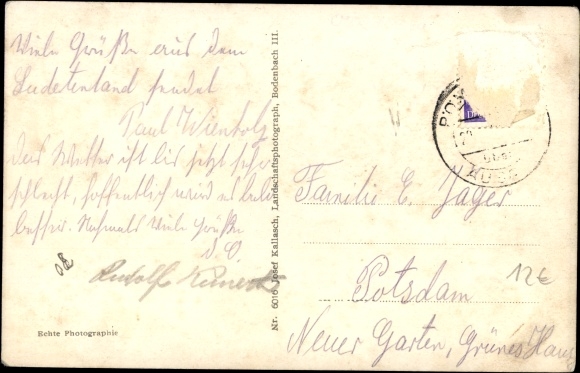 Viele Grüße aus dem
Sudetenland sendet
Paul Wienholz
Das Wetter ist bis jetzt sehr
schlecht, hoffentlich wird es bald
besser. Nochmals Viele Grüße
D. O.
Rudolf
Echte Photographie
Nr. 6016 Josef Kallasch, Landschaftsphotograph, Bodenbach III.
Familie E. Jäger
12€
Potsdam
Neuer Garten, Grünes Haus